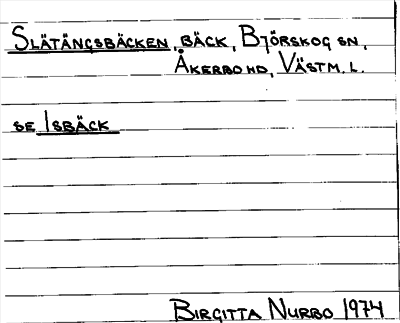 SLÄTÄNGSBÄCKEN, BÄCK, BJÖRSKOG SN,
ÅKERBO HD, VÄSTM. L.
SE ISBÄCK
BIRGITTA NURBO 1974